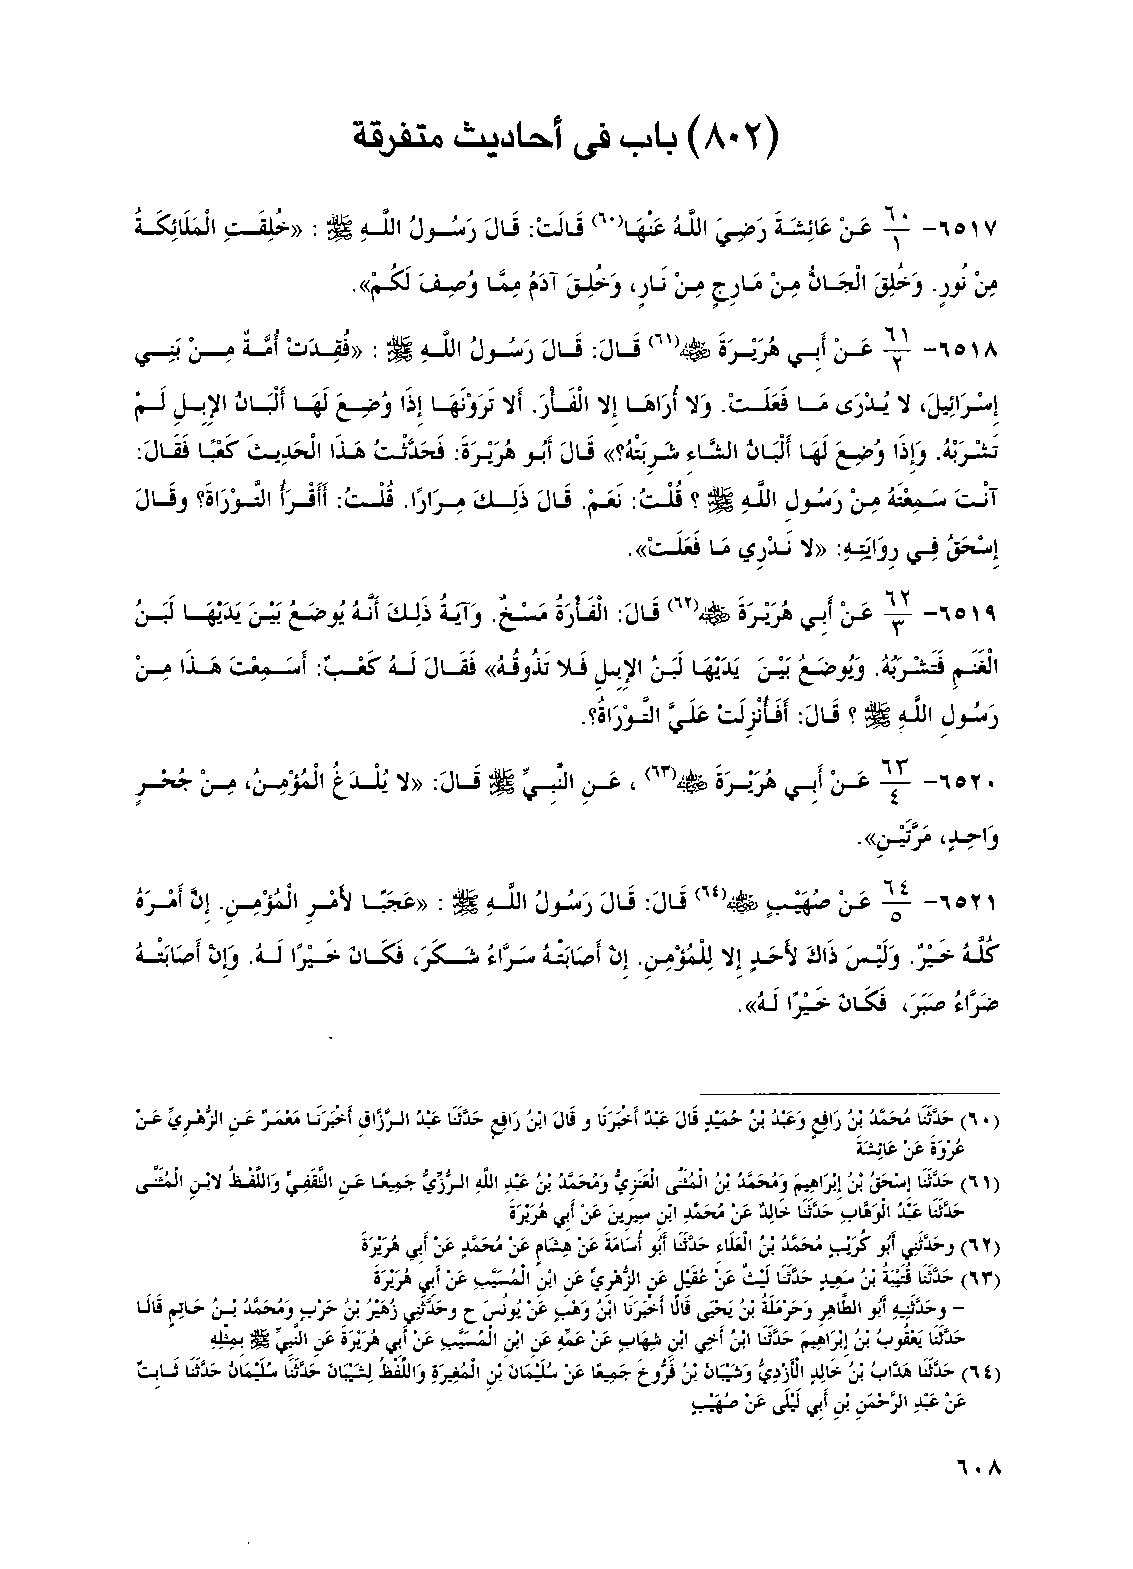 (٨٠٢) باب فى أحاديث متفرقة
٦٥١٧- ٦٠/١ عَنْ عَائِشَةَ رَضِيَ اللَّهُ عَنْهَا(٦٠) قَالَتْ: قَالَ رَسُولُ اللَّهِ ﷺ : «خُلِقَتِ الْمَلَائِكَةُ
مِنْ نُورٍ. وَخُلِقَ الْجَانُّ مِنْ مَارِجٍ مِنْ نَارٍ، وَخُلِقَ آدَمُ مِمَّا وُصِفَ لَكُمْ».
٦٥١٨- ٦١/٢ عَنْ أَبِي هُرَيْرَةَ ﵁(٦١) قَالَ: قَالَ رَسُولُ اللَّهِ ﷺ : «فُقِدَتْ أُمَّةٌ مِنْ بَنِي
إِسْرَائِيلَ، لا يُدْرَى مَا فَعَلَتْ. وَلا أُرَاهَا إِلا الْفَأْرَ. أَلا تَرَوْنَهَا إِذَا وُضِعَ لَهَا أَلْبَانُ الإِبِلِ لَمْ
تَشْرَبْهُ. وَإِذَا وُضِعَ لَهَا أَلْبَانُ الشَّاءِ شَرِبَتْهُ؟» قَالَ أَبُو هُرَيْرَةَ: فَحَدَّثْتُ هَذَا الْحَدِيثَ كَعْبًا فَقَالَ:
آنْتَ سَمِعْتَهُ مِنْ رَسُولِ اللَّهِ ﷺ ؟ قُلْتُ: نَعَمْ. قَالَ ذَلِكَ مِرَارًا. قُلْتُ: أَأَقْرَأُ التَّوْرَاةَ؟ وقَالَ
إِسْحَقُ فِي رِوَايَتِهِ: «لا نَدْرِي مَا فَعَلَتْ».
٦٥١٩- ٦٢/٣ عَنْ أَبِي هُرَيْرَةَ ﵁(٦٢) قَالَ: الْفَأْرَةُ مَسْخٌ. وَآيَةُ ذَلِكَ أَنَّهُ يُوضَعُ بَيْنَ يَدَيْهَا لَبَنُ
الْغَنَمِ فَتَشْرَبُهُ. وَيُوضَعُ بَيْنَ يَدَيْهَا لَبَنُ الإِبِلِ فَلا تَذُوقُهُ» فَقَالَ لَهُ كَعْبٌ: أَسَمِعْتَ هَذَا مِنْ
رَسُولِ اللَّهِ ﷺ ؟ قَالَ: أَفَأُنْزِلَتْ عَلَيَّ التَّوْرَاةُ؟.
٦٥٢٠- ٦٣/٤ عَنْ أَبِي هُرَيْرَةَ ﵁(٦٣) ، عَنِ النَّبِيِّ ﷺ قَالَ: «لا يُلْدَغُ الْمُؤْمِنُ، مِنْ جُحْرٍ
وَاحِدٍ، مَرَّتَيْنِ».
٦٥٢١- ٦٤/٥ عَنْ صُهَيْبٍ ﵁(٦٤) قَالَ: قَالَ رَسُولُ اللَّهِ ﷺ : «عَجَبًا لأَمْرِ الْمُؤْمِنِ. إِنَّ أَمْرَهُ
كُلَّهُ خَيْرٌ. وَلَيْسَ ذَاكَ لأَحَدٍ إِلا لِلْمُؤْمِنِ. إِنْ أَصَابَتْهُ سَرَّاءُ شَكَرَ، فَكَانَ خَيْرًا لَهُ. وَإِنْ أَصَابَتْهُ
ضَرَّاءُ صَبَرَ، فَكَانَ خَيْرًا لَهُ».
(٦٠) حَدَّثَنَا مُحَمَّدُ بْنُ رَافِعٍ وَعَبْدُ بْنُ حُمَيْدٍ قَالَ عَبْدٌ أَخْبَرَنَا و قَالَ ابْنُ رَافِعٍ حَدَّثَنَا عَبْدُ الرَّزَّاقِ أَخْبَرَنَا مَعْمَرٌ عَنِ الزُّهْرِيِّ عَنْ
عُرْوَةَ عَنْ عَائِشَةَ
(٦١) حَدَّثَنَا إِسْحَقُ بْنُ إِبْرَاهِيمَ وَمُحَمَّدُ بْنُ الْمُثَنَّى الْعَنَزِيُّ وَمُحَمَّدُ بْنُ عَبْدِ اللَّهِ الرُّزِّيُّ جَمِيعًا عَنِ الثَّقَفِيِّ وَاللَّفْظُ لابْنِ الْمُثَنَّى
حَدَّثَنَا عَبْدُ الْوَهَّابِ حَدَّثَنَا خَالِدٌ عَنْ مُحَمَّدِ ابْنِ سِيرِينَ عَنْ أَبِي هُرَيْرَةَ
(٦٢) وحَدَّثَنِي أَبُو كُرَيْبٍ مُحَمَّدُ بْنُ الْعَلَاءِ حَدَّثَنَا أَبُو أُسَامَةَ عَنْ هِشَامٍ عَنْ مُحَمَّدٍ عَنْ أَبِي هُرَيْرَةَ
(٦٣) حَدَّثَنَا قُتَيْبَةُ بْنُ سَعِيدٍ حَدَّثَنَا لَيْثٌ عَنْ عُقَيْلٍ عَنِ الزُّهْرِيِّ عَنِ ابْنِ الْمُسَيَّبِ عَنْ أَبِي هُرَيْرَةَ
– وحَدَّثَنِيهِ أَبُو الطَّاهِرِ وَحَرْمَلَةُ بْنُ يَحْيَى قَالَا أَخْبَرَنَا ابْنُ وَهْبٍ عَنْ يُونُسَ ح وحَدَّثَنِي زُهَيْرُ بْنُ حَرْبٍ وَمُحَمَّدُ بْنُ حَاتِمٍ قَالَا
حَدَّثَنَا يَعْقُوبُ بْنُ إِبْرَاهِيمَ حَدَّثَنَا ابْنُ أَخِي ابْنِ شِهَابٍ عَنْ عَمِّهِ عَنِ ابْنِ الْمُسَيَّبِ عَنْ أَبِي هُرَيْرَةَ عَنِ النَّبِيِّ ﷺ بِمِثْلِهِ
(٦٤) حَدَّثَنَا هَدَّابُ بْنُ خَالِدٍ الْأَزْدِيُّ وَشَيْبَانُ بْنُ فَرُّوخَ جَمِيعًا عَنْ سُلَيْمَانَ بْنِ الْمُغِيرَةِ وَاللَّفْظُ لِشَيْبَانَ حَدَّثَنَا سُلَيْمَانُ حَدَّثَنَا ثَابِتٌ
عَنْ عَبْدِ الرَّحْمَنِ بْنِ أَبِي لَيْلَى عَنْ صُهَيْبٍ
٦٠٨